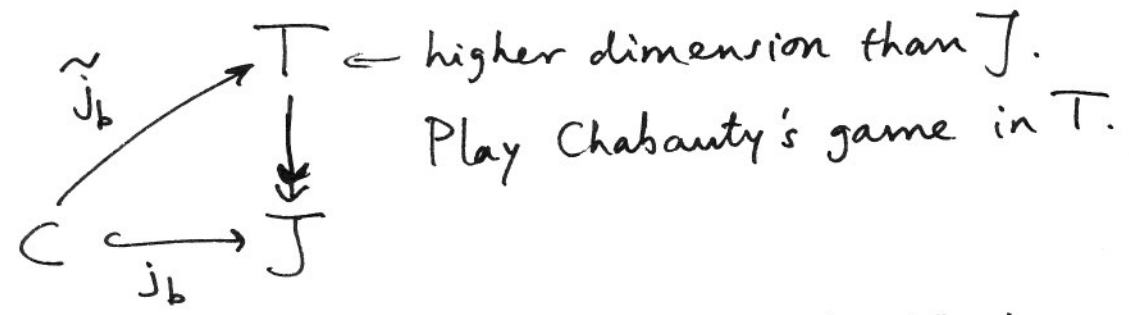 T ← higher dimension than J.
j̃_b
Play Chabauty's game in T.
C J
j_b